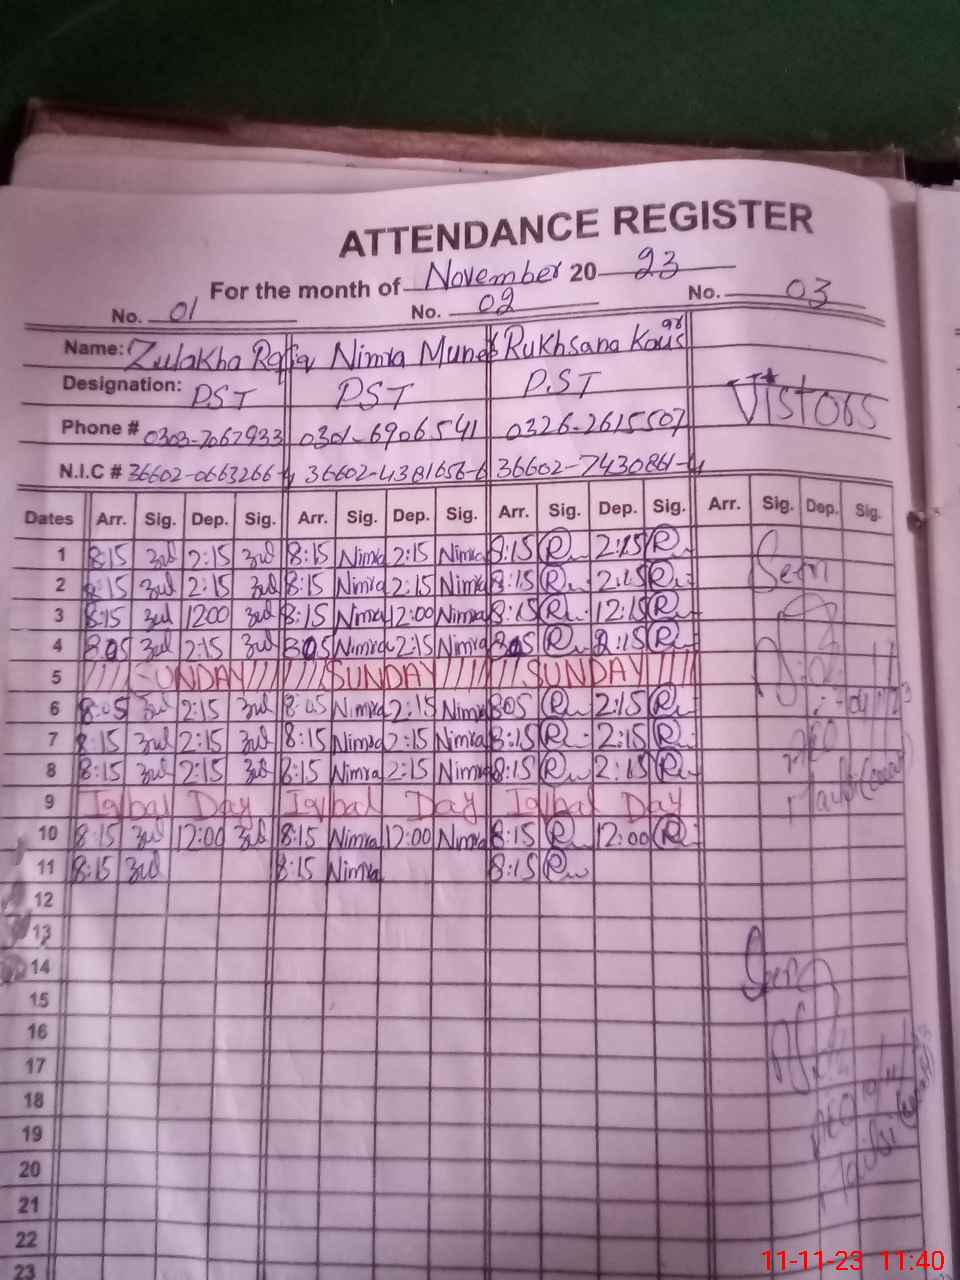 ATTENDANCE REGISTER
For the month of November 20 23
No. 01 No. 02 No. 03
Name: Zulakha Rafiq Nimra Muneer Rukhsana Kousar
Designation: PST PST P.ST Vistors
Phone # 0303-7067933 0301-6906541 0326-2615507
N.I.C # 36602-0663266-4 36602-4381656-6 36602-7430861-4
Dates Arr. Sig. Dep. Sig. Arr. Sig. Dep. Sig. Arr. Sig. Dep. Sig. Arr. Sig. Dep. Sig.
1 8:15 zul 2:15 zul 8:15 Nimra 2:15 Nimra 8:15 R 2:15 R
2 8:15 zul 2:15 zul 8:15 Nimra 2:15 Nimra 8:15 R 2:15 R Seen
3 8:15 zul 1200 zul 8:15 Nimra 12:00 Nimra 8:15 R 12:15 R
4 805 zul 2:15 zul 805 Nimra 2:15 Nimra 805 R 2:15 R
5 SUNDAY SUNDAY SUNDAY
6 8:05 zul 2:15 zul 8:05 Nimra 2:15 Nimra 805 R 2:15 R
7 8:15 zul 2:15 zul 8:15 Nimra 2:15 Nimra 8:15 R 2:15 R
8 8:15 zul 2:15 zul 8:15 Nimra 2:15 Nimra 8:15 R 2:15 R
9 Iqbal Day Iqbal Day Iqbal Day
10 8:15 zul 12:00 zul 8:15 Nimra 12:00 Nimra 8:15 R 12:00 R
11 8:15 zul 8:15 Nimra 8:15 R
12
13
14 Seen
15
16
17
18
19
20
21
22
23
11-11-23 11:40